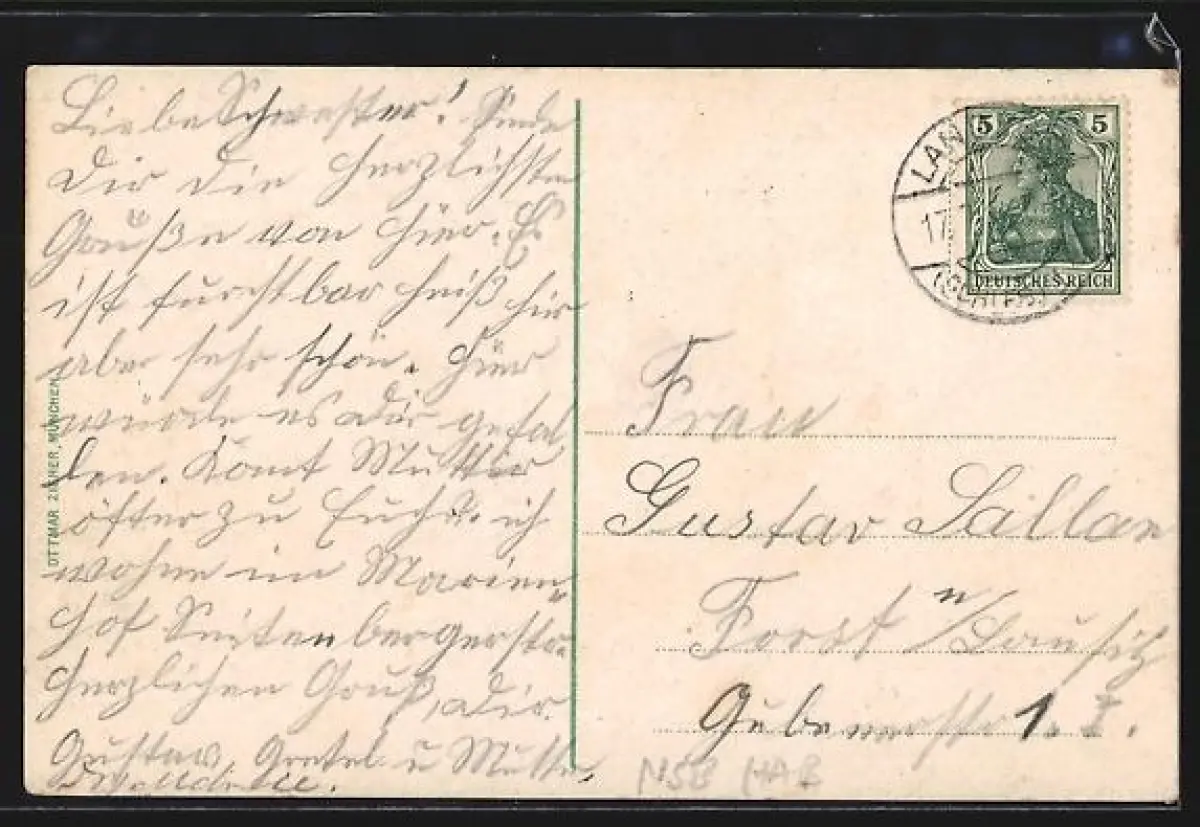 Liebe Schwester! Sende
Dir die herzlichsten
Grüße von hier. Es
ist furchtbar heiß hir
aber sehr schön. Hier
würde es dir gefal
len. Komt Mutter
öfter zu Euch? ich
wohne im Marien-
hof Seitenbergerstr.
Herzlichen Gruß, dir
Gustav, Gretel u Mutter
OTTMAR ZIEHER, MÜNCHEN
5 5
DEUTSCHES REICH
LAN
17.
(SCHLES.)
Frau
Gustav Sallan
Forst n/Lausitz
Gubenerstr. 1. I.
NSB HAB